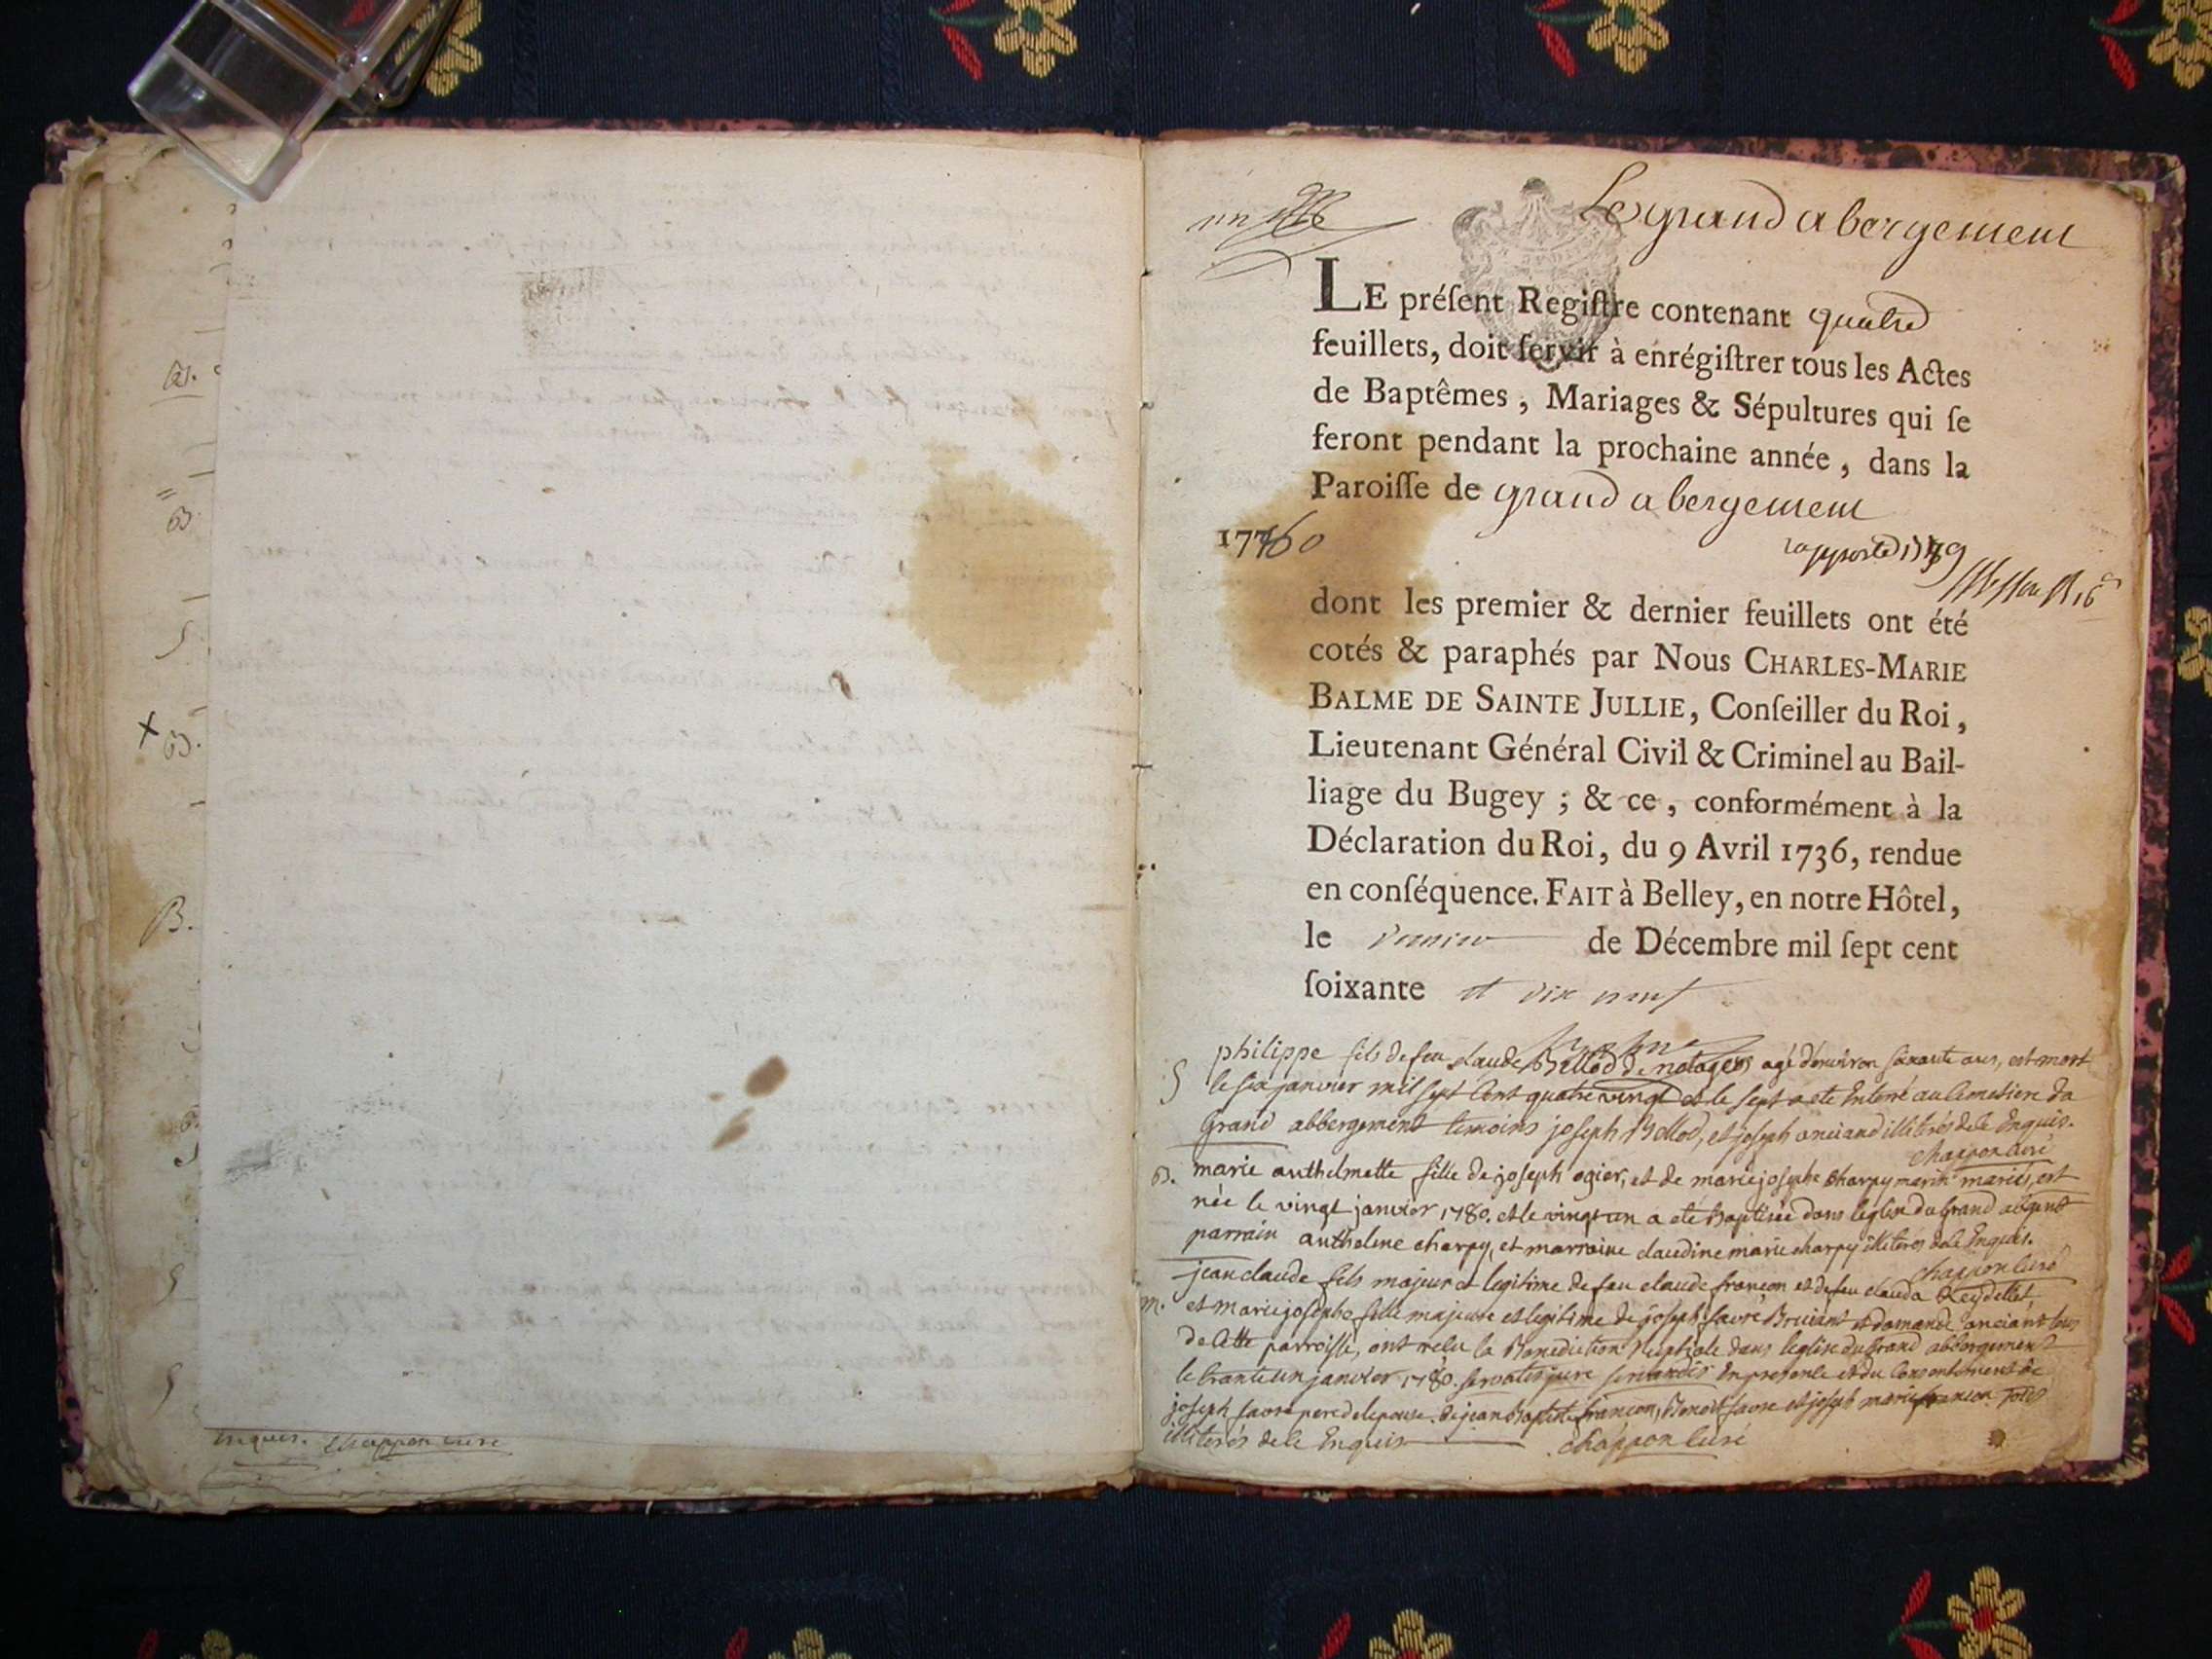 B.
B.
S
X B.
B.
S
S
enquis. chappon curé
un
Le grand abergement
LE préſent Regiſtre contenant quatre
feuillets, doit ſervir à enrégiſtrer tous les Actes
de Baptêmes, Mariages & Sépultures qui ſe
feront pendant la prochaine année, dans la
Paroiſſe de grand abergement
rapporté
dont les premier & dernier feuillets ont été
cotés & paraphés par Nous CHARLES-MARIE
BALME DE SAINTE JULLIE, Conſeiller du Roi,
Lieutenant Général Civil & Criminel au Bail-
liage du Bugey ; & ce, conformément à la
Déclaration du Roi, du 9 Avril 1736, rendue
en conſéquence. FAIT à Belley, en notre Hôtel,
le dernier de Décembre mil ſept cent
ſoixante et dix neuf
philippe fils de feu claude Billod de notages agé denviron soixante ans, est mort
S le six janvier mil sept cent quatre vingt et le sept a ete Enterré au Cimetiere du
Grand abbergement temoins joseph Billod, et joseph anciand illiterés de ce Enquis.
chappon curé
B. marie anthelmette fille de joseph ogier, et de marie josephe charpy mariés, est
née le vingt janvier 1780. et le vingt un a eté Baptisée dans leglise du Grand abgent
parrain anthelme charpy, et marraine claudine marie charpy illiterés de ce Enquis.
chappon curé
jean claude fils majeur et legitime de feu claude françon et de feu clauda Reydellet
M. et marie josephe fille majeure et legitime de joseph favre Bruiant et damande anciant tous
de Cette parroisse, ont reçu la Benediction Nuptiale dans leglise du Grand abbergement
le trante un janvier 1780. servatis jure servandis En presence et du Consentement de
joseph favre pere de lepouse. de jean Baptiste françon, Benoit favre et joseph marie françon tous
illiterés de ce Enquis chappon curé